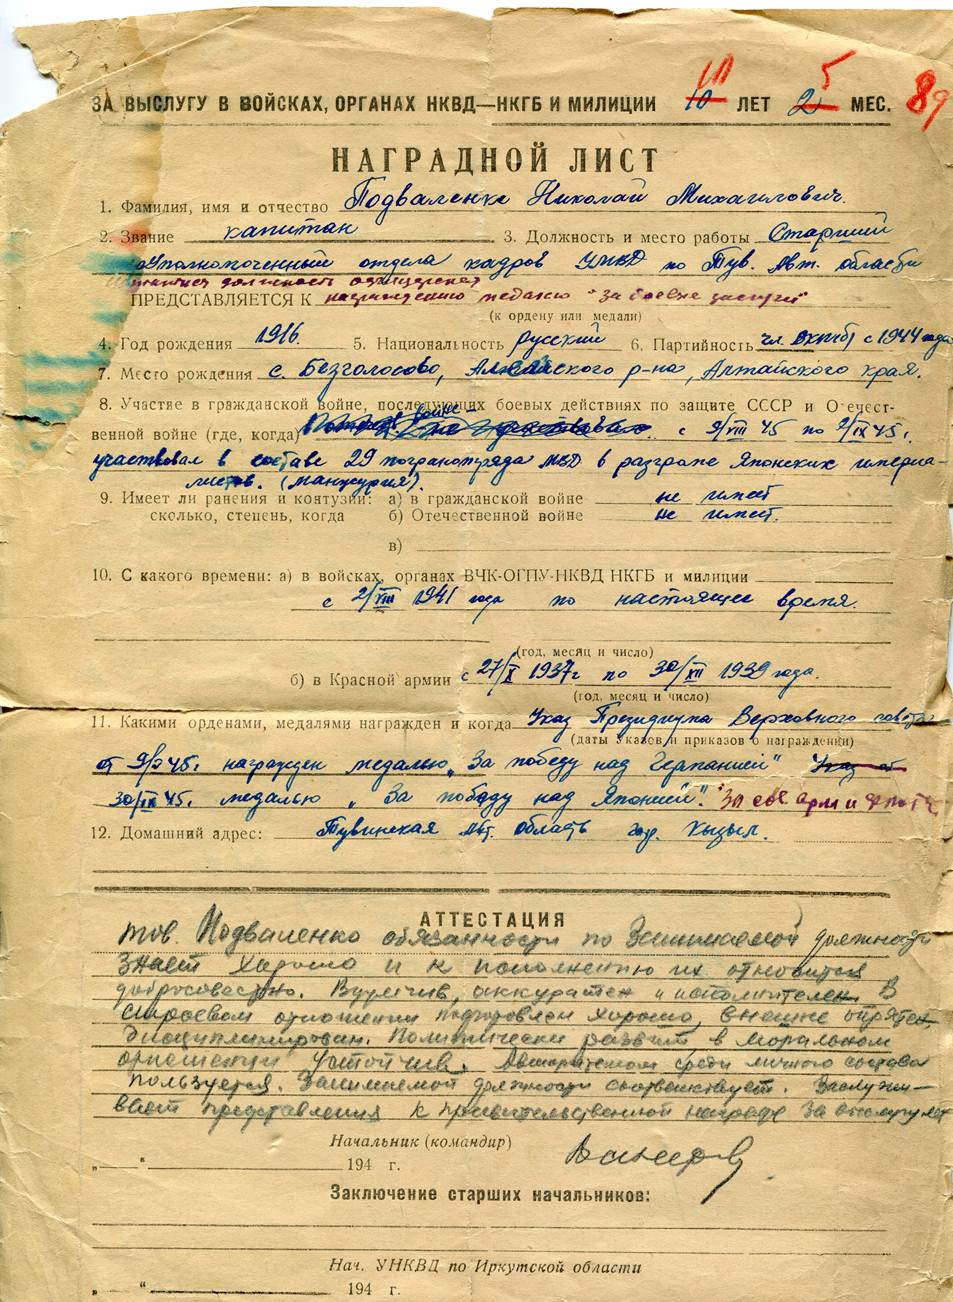 ЗА ВЫСЛУГУ В ВОЙСКАХ, ОРГАНАХ НКВД—НКГБ И МИЛИЦИИ 10 ЛЕТ 2 5 МЕС. 89
НАГРАДНОЙ ЛИСТ
1. Фамилия, имя и отчество Подваленко Николай Михайлович.
2. Звание капитан 3. Должность и место работы Старший
Уполномоченный отдела кадров УМВД по Тув. Авт. области
должность офицерская
ПРЕДСТАВЛЯЕТСЯ К награждению медалью "За боевые заслуги"
(к ордену или медали)
4. Год рождения 1916. 5. Национальность русский 6. Партийность чл. ВКП(б) с 1944 года
7. Место рождения с. Безголосово, Алейского р-на, Алтайского края.
8. Участие в гражданской войне, последующих боевых действиях по защите СССР и Отечест-
венной войне (где, когда) войне с 9/VIII 45 по 2/IX 45 г.
участвовал в составе 29 погранотряда МВД в разгроме Японских империа-
листов. (Манчжурия).
9. Имеет ли ранения и контузии: а) в гражданской войне не имеет
сколько, степень, когда б) Отечественной войне не имеет.
в)
10. С какого времени: а) в войсках, органах ВЧК-ОГПУ-НКВД НКГБ и милиции
с 2/VIII 1941 года по настоящее время.
(год, месяц и число)
б) в Красной армии с 27/X 1937 г по 30/XII 1939 года.
(год, месяц и число)
11. Какими орденами, медалями награжден и когда Указ Президиума Верховного совета
(даты Указов и приказов о награждении)
от 9/V 45 г. награжден медалью „За победу над Германией" Указ от
30/IX 45 г. медалью „За победу над Японией". "30 лет арм и флота
12. Домашний адрес: Тувинская Авт. область гор. Кызыл.
АТТЕСТАЦИЯ
тов. Подваленко обязанности по Занимаемой должности
знает хорошо и к исполнению их относится
добросовестно. Вдумчив, аккуратен и исполнителен В
строевом отношении подготовлен хорошо, внешне опрятен
дисциплинирован. Политически развит в моральном
отношении устойчив. Авторитетом среди личного состава
пользуется. Занимаемой должности соответствует. Заслужи-
вает представления к правительственной награде за выслугу лет
Начальник (командир)
„ “ 194 г.
Заключение старших начальников:
Нач. УНКВД по Иркутской области
„ “ 194 г.